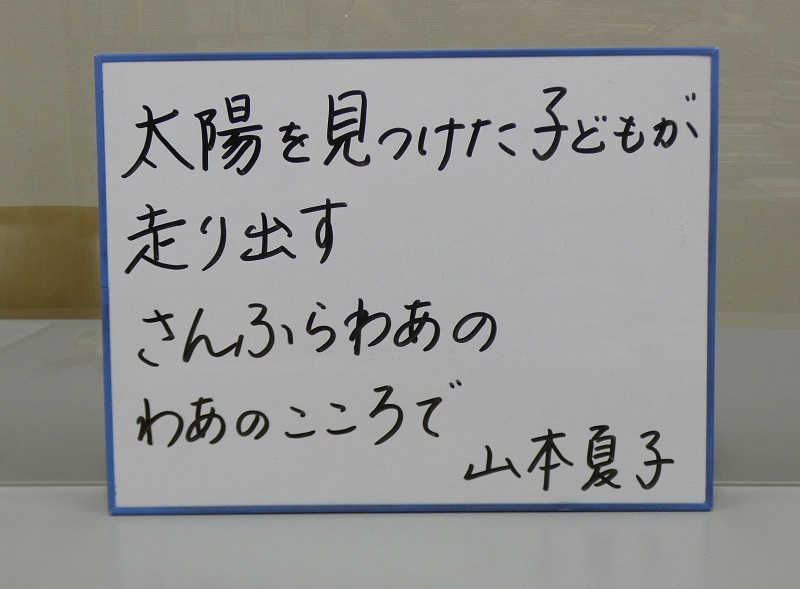 太陽を見つけた子どもが
走り出す
さんふらわあの
わあのこころで
山本夏子